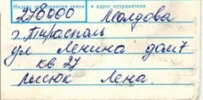 Индекс предприятия связи и адрес отправителя
278000 Молдова
г. Тирасполь
ул Ленина дом 7
кв 27
Лысюк Лена.